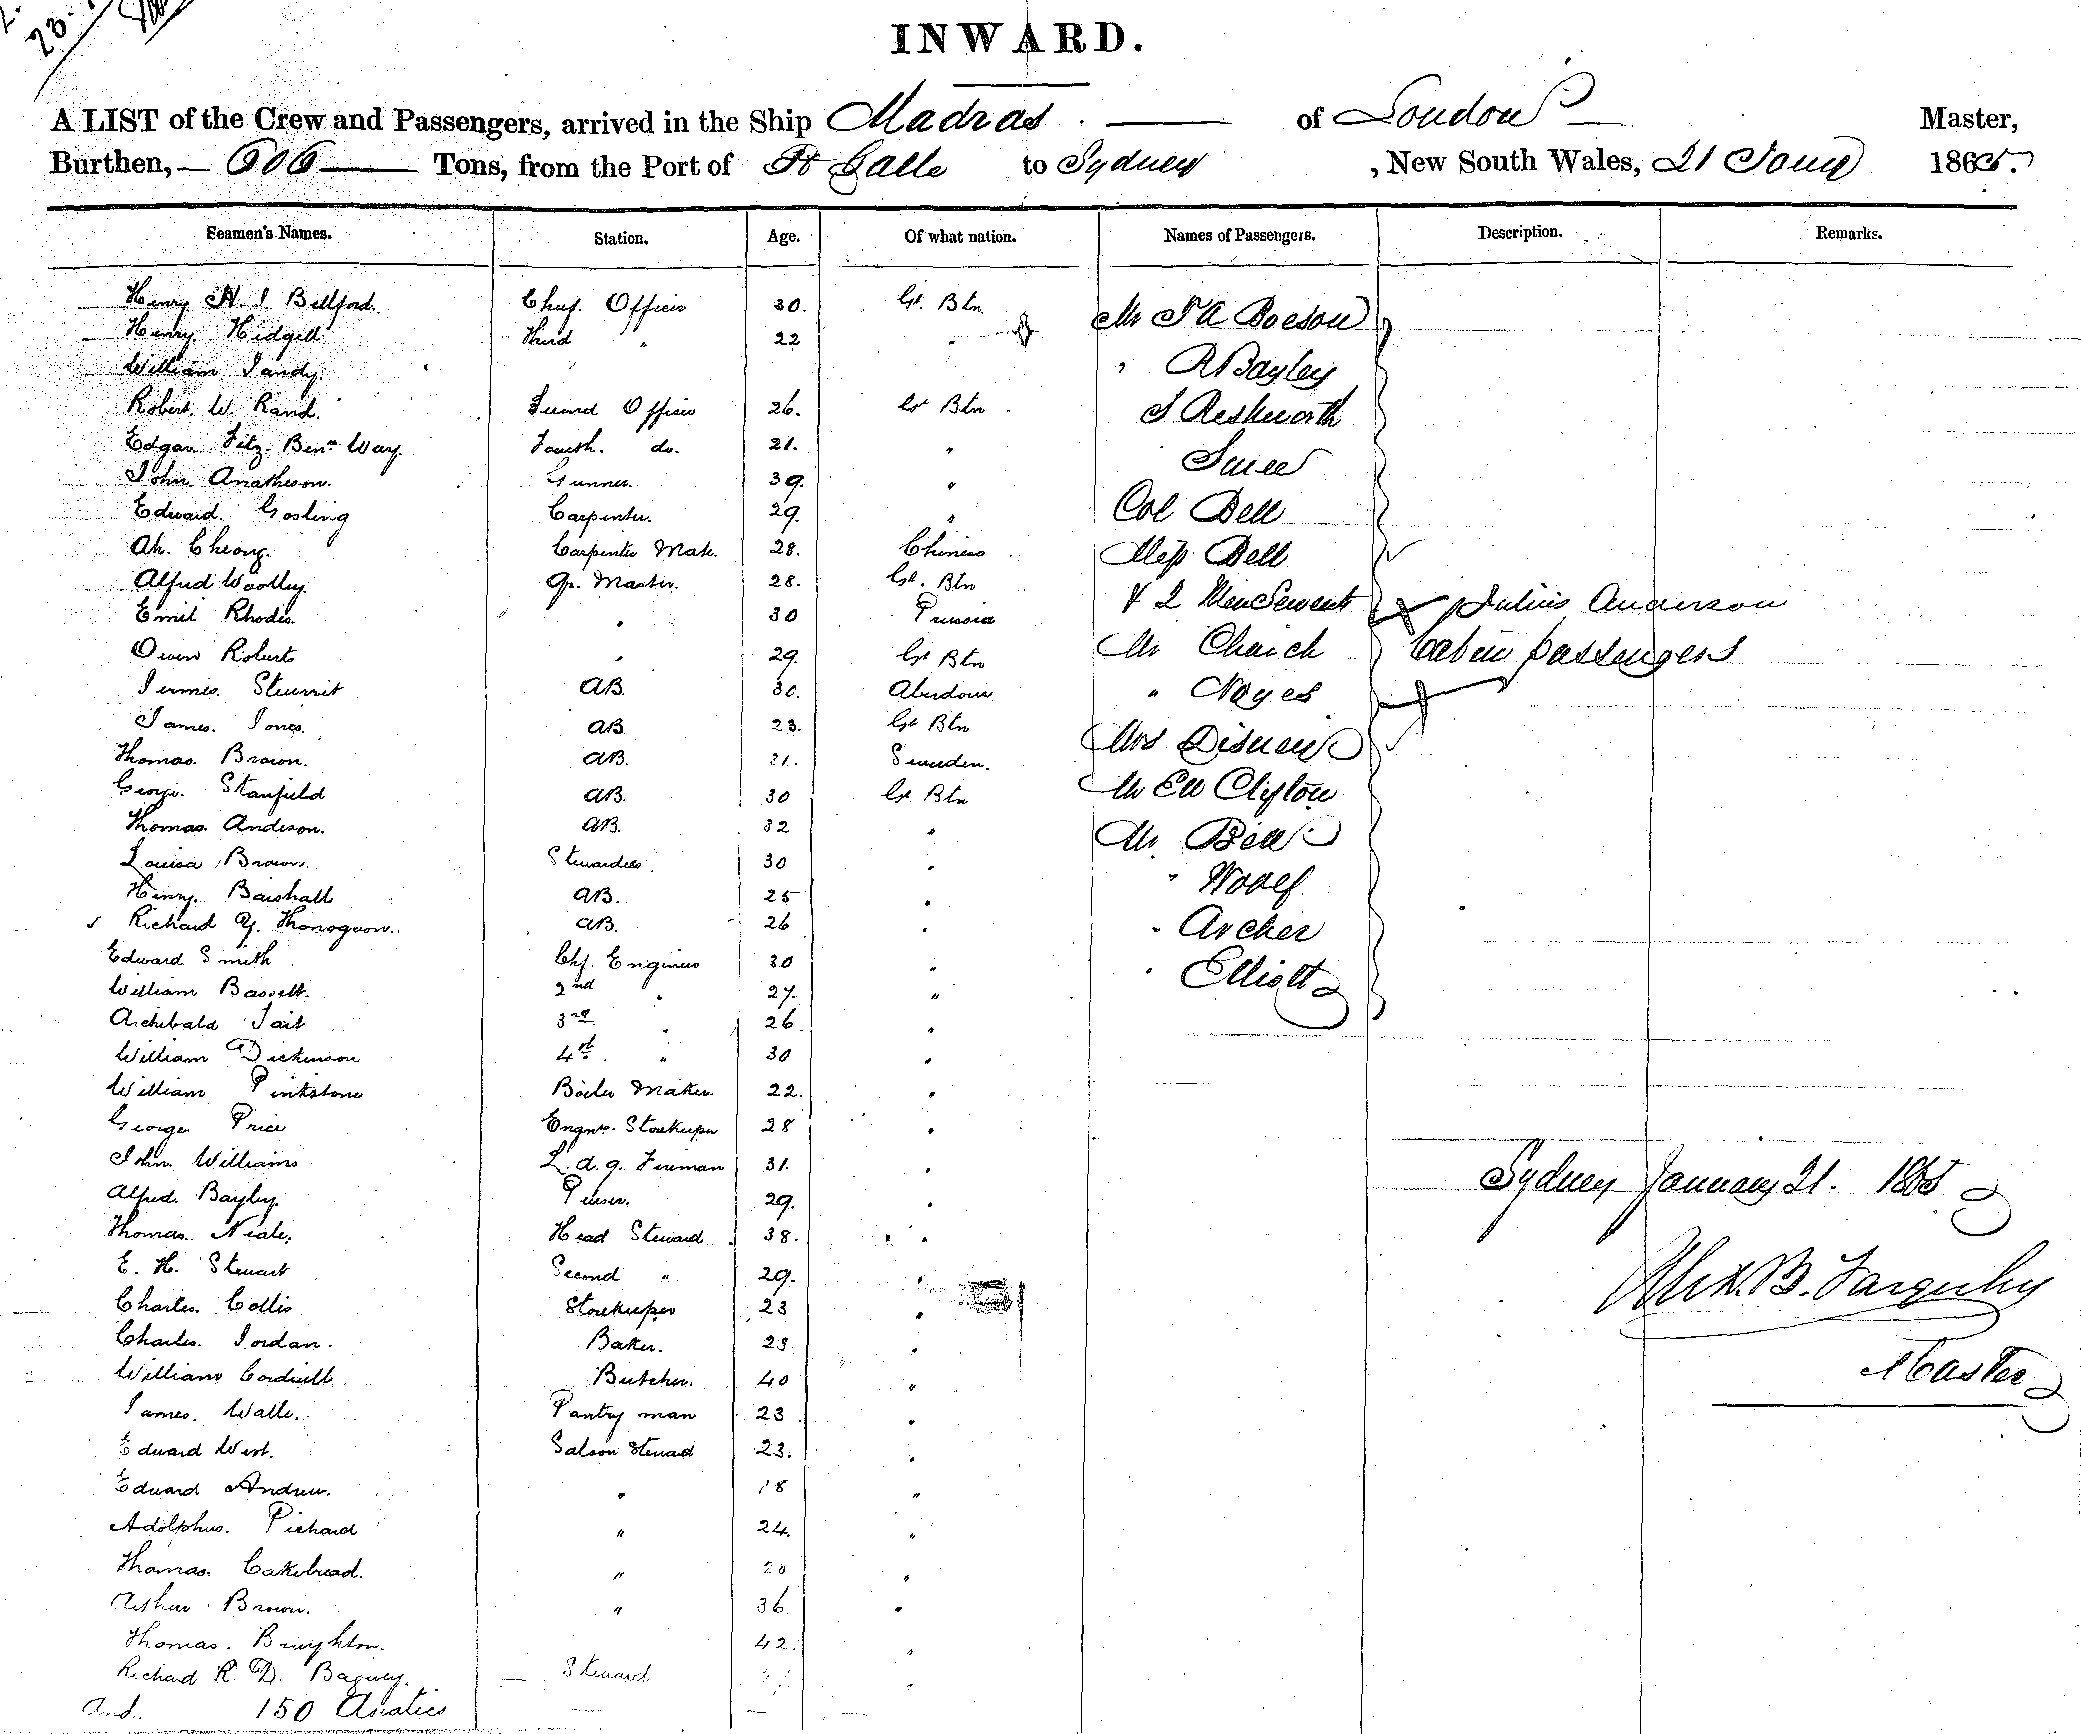 INWARD.
A LIST of the Crew and Passengers, arrived in the Ship Madras of London Master,
Burthen, 606 Tons, from the Port of Pt Galle to Sydney , New South Wales, 21 Jany 1865.
Seamen's Names. Station. Age. Of what nation. Names of Passengers. Description. Remarks.
Henry Chief Officer 30. Gt. Btn
Henry Hidgell Third " 22 "
William Tandy
Robert W. Rand. Second Officer 26. Gt Btn
Edgar Fitz Benn Way. Fourth. do. 21. "
John Gunner. 39. "
Edward. Gosling Carpenter. 29. "
Ah. Cheong. Carpenter Mate. 28. Chinese
Alfred Woolley. Qr. Master. 28. Gt. Btn
Emil Rhodes. " 30 Prussia
Owen Roberts " 29. Gt Btn
James AB. 30. Aberdour
James. Jones. AB 23. Gt Btn
Thomas. Brown. AB. 21. Sweeden.
George. Stanfield AB. 30 Gt. Btn
Thomas. Anderson. AB. 32 "
Louisa Brown. Stewardess. 30 "
Henry. AB. 25 "
Richard AB. 26 "
Edward Smith Chf. Engineer 30 "
William Bassett. 2nd " 27. "
Archibald Tait 3rd " 26 "
William Dickinson 4th. " 30 "
William Pinkstone Boiler Maker 22. "
George Price Engnr. Storekeeper 28 "
John. Williams L.d.g. Fireman 31. "
Alfred. Bayley. Purser. 29. "
Thomas. Neale. Head Steward 38. "
E. H. Steuart Second " 29. "
Charles. Collis Storekeeper 23 "
Charles. Jordan. Baker. 23 "
William Butcher. 40 "
James. Walls. Pantry man 23 "
Edward West. Saloon Steward 23. "
Edward Andrew. " 18 "
Adolphus. Pichard " 24. "
Thomas. Cakebread. " 20 "
Arthur Brown. " 36 "
Thomas. Brighton. 42. "
Richard R. D. Steward
And. 150 Asiatics
Mr
" R Bayley
J Ashworth
Col Bell
Miss Bell
& 2 Men Servants Julius Anderson
Mr Church Cabin passengers
" Noyes
Mrs
Mr Ell Clifton
Mr. Bell
" Woolf
" Archer
" Elliott
Sydney January 21. 1865
Alex. B. Farquhar
Master